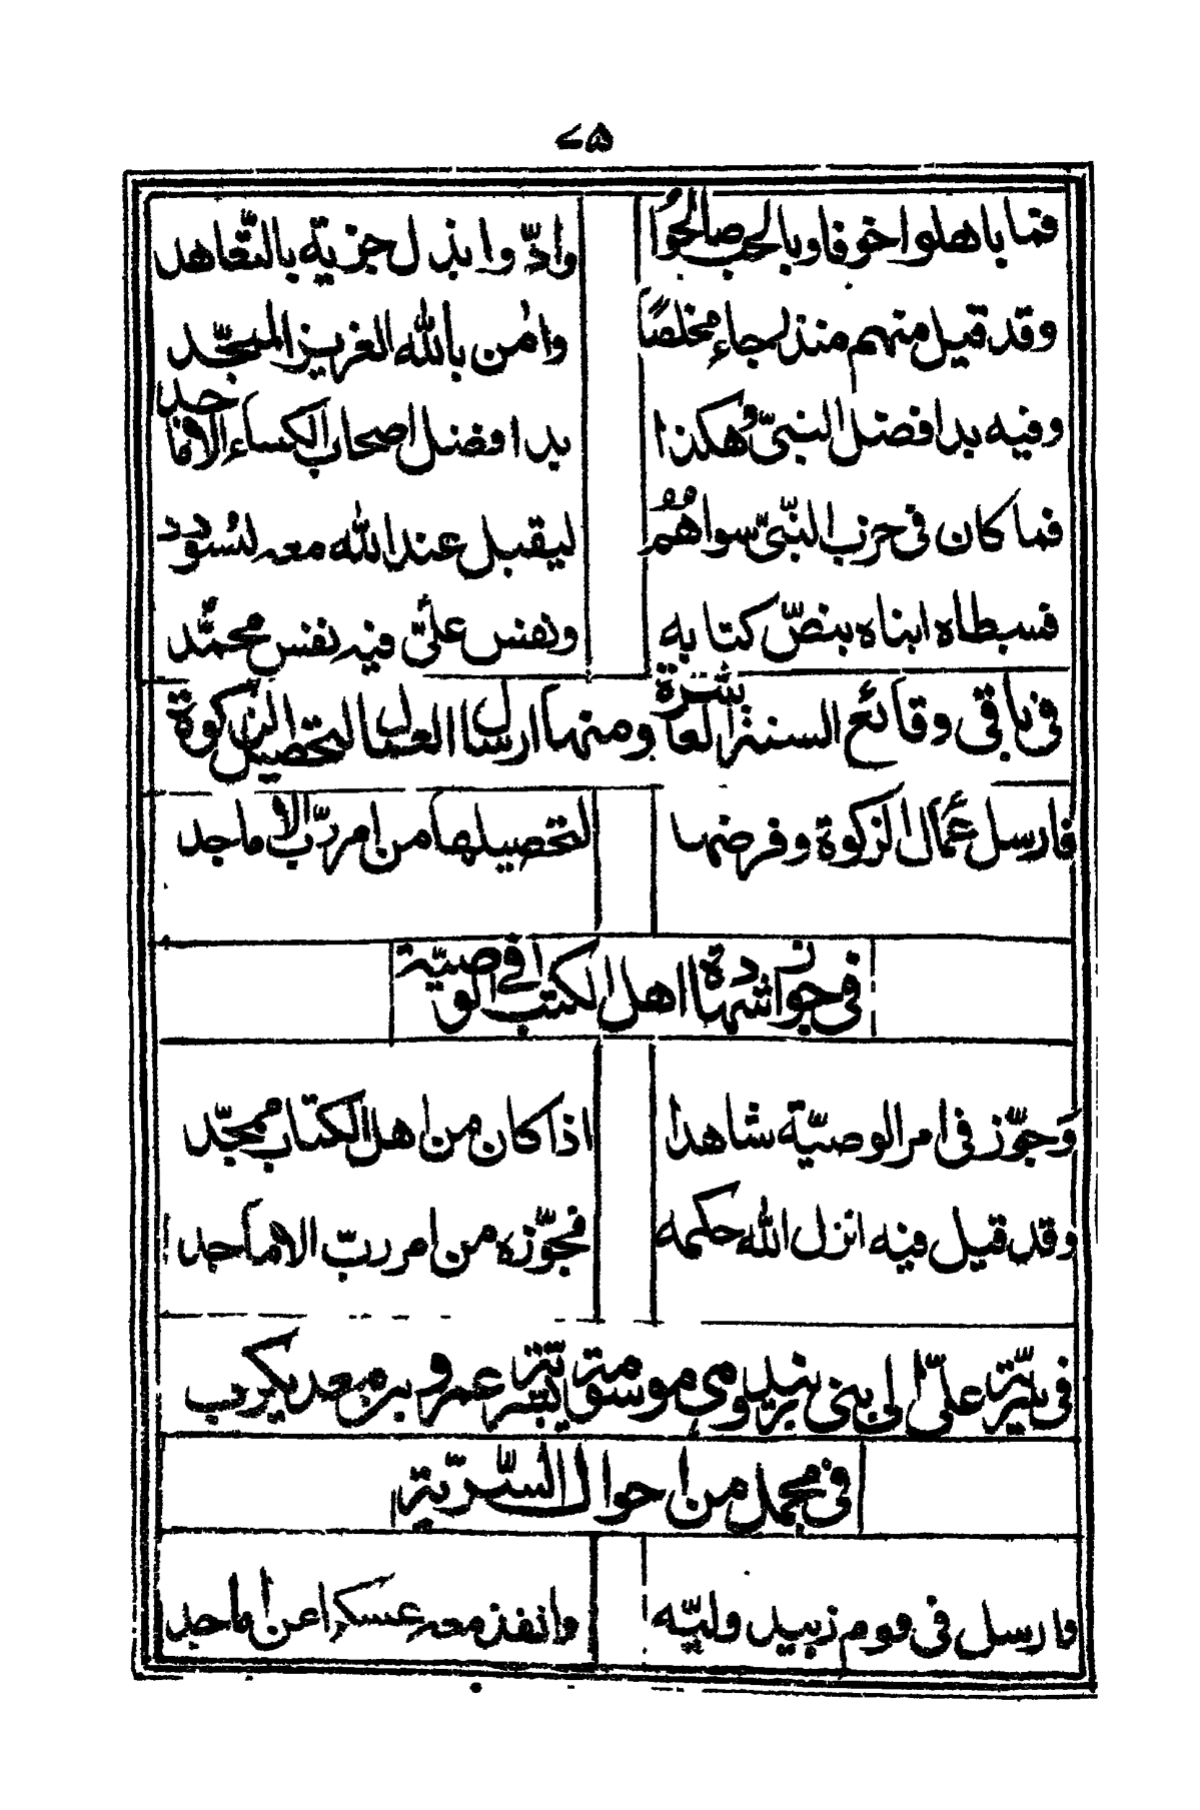 ۷۵
فما باهلوا خوفا وبالحب صالحوا وادّوا بذل جزية بالتعاهد
وقد قيل منهم منذر جاء مخلصًا وامن بالله العزيز الممجّد
وفيه بدا فضل النبىّ وهكذا بدا فضل اصحاب الكساء الاماجد
فما كان فى حزب النّبىّ سواهُمُ ليقبل عند الله معه لسُودد
فسبطاه ابناه بنصّ كتابه ونفس علىّ فيه نفس محمّد
فى باقى وقائع السنة العاشرة ومنها ارسال العمال لتحصيل الزكوة
فارسل عمّال الزكوة وفرضها لتحصيلها من امر ربّ الاماجد
فى جواز شهادة اهل الكتب فى الوصيّة
وَجوّز فى امر الوصيّة شاهدا اذا كان من اهل الكتاب ممجّد
وقد قيل فيه انزل الله حكمه فجوّزه من امر ربّ الاماجد
فى سريّة علىّ الى بنى زبيد وهى موسومة بسريّة عمرو بن معديكرب
فى مجمل من احوال السّريّة
وارسل فى قوم زبيد وليّه وانفذ معه عسكرا عن اماجد